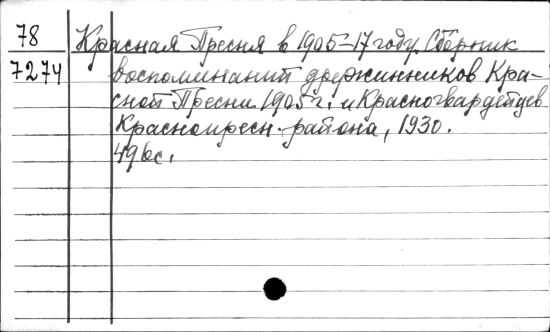 78 Красная Пресня в 1905-17 году. Сборник
7274 воспоминаний дружинников Кра-
сной Пресни 1905 г. и Красногвардейцев
Краснопресн. района, 1930.
496 с.